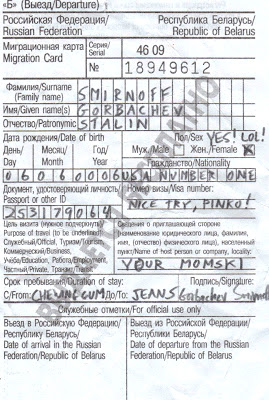 «Б» (Выезд/Departure)
Российская Федерация/ Республика Беларусь/
Russian Federation Republic of Belarus
Миграционная карта Серия/ 46 09
Migration Card Serial
№ 18949612
Фамилия/Surname
(Family name) SMIRNOFF
Имя/Given name(s) GORBACHEV
Отчество/Patronymic STALIN
Дата рождения/Date of birth Пол/Sex YES! LOL!
День/ Месяц/ Год/ Муж./Male Жен./Female X
Day Month Year Гражданство/Nationality
06060000USA NUMBER ONE
Документ, удостоверяющий личность/ Номер визы/Visa number:
Passport or other ID NICE TRY, PINKO!
253179064
Цель визита (нужное подчеркнуть)/ Сведения о приглашающей стороне
Purpose of travel (to be underlined): (наименование юридического лица, фамилия,
Служебный/Official, Туризм/Tourism, имя, (отчество) физического лица), населенный
Коммерческий/Business, пункт/Name of host person or company, locality:
Учеба/Education, Работа/Employment,
Частный/Private, Транзит/Transit YOUR MOMSKI
Срок пребывания/Duration of stay: Подпись/Signature:
С/From: CHEWING GUM До/To: JEANS Gorbachev
Служебные отметки/For official use only
Въезд в Российскую Федерацию/ Выезд из Российской Федерации/
Республику Беларусь/ Республики Беларусь/
Date of arrival in the Russian Date of departure from the Russian
Federation/Republic of Belarus Federation/Republic of Belarus